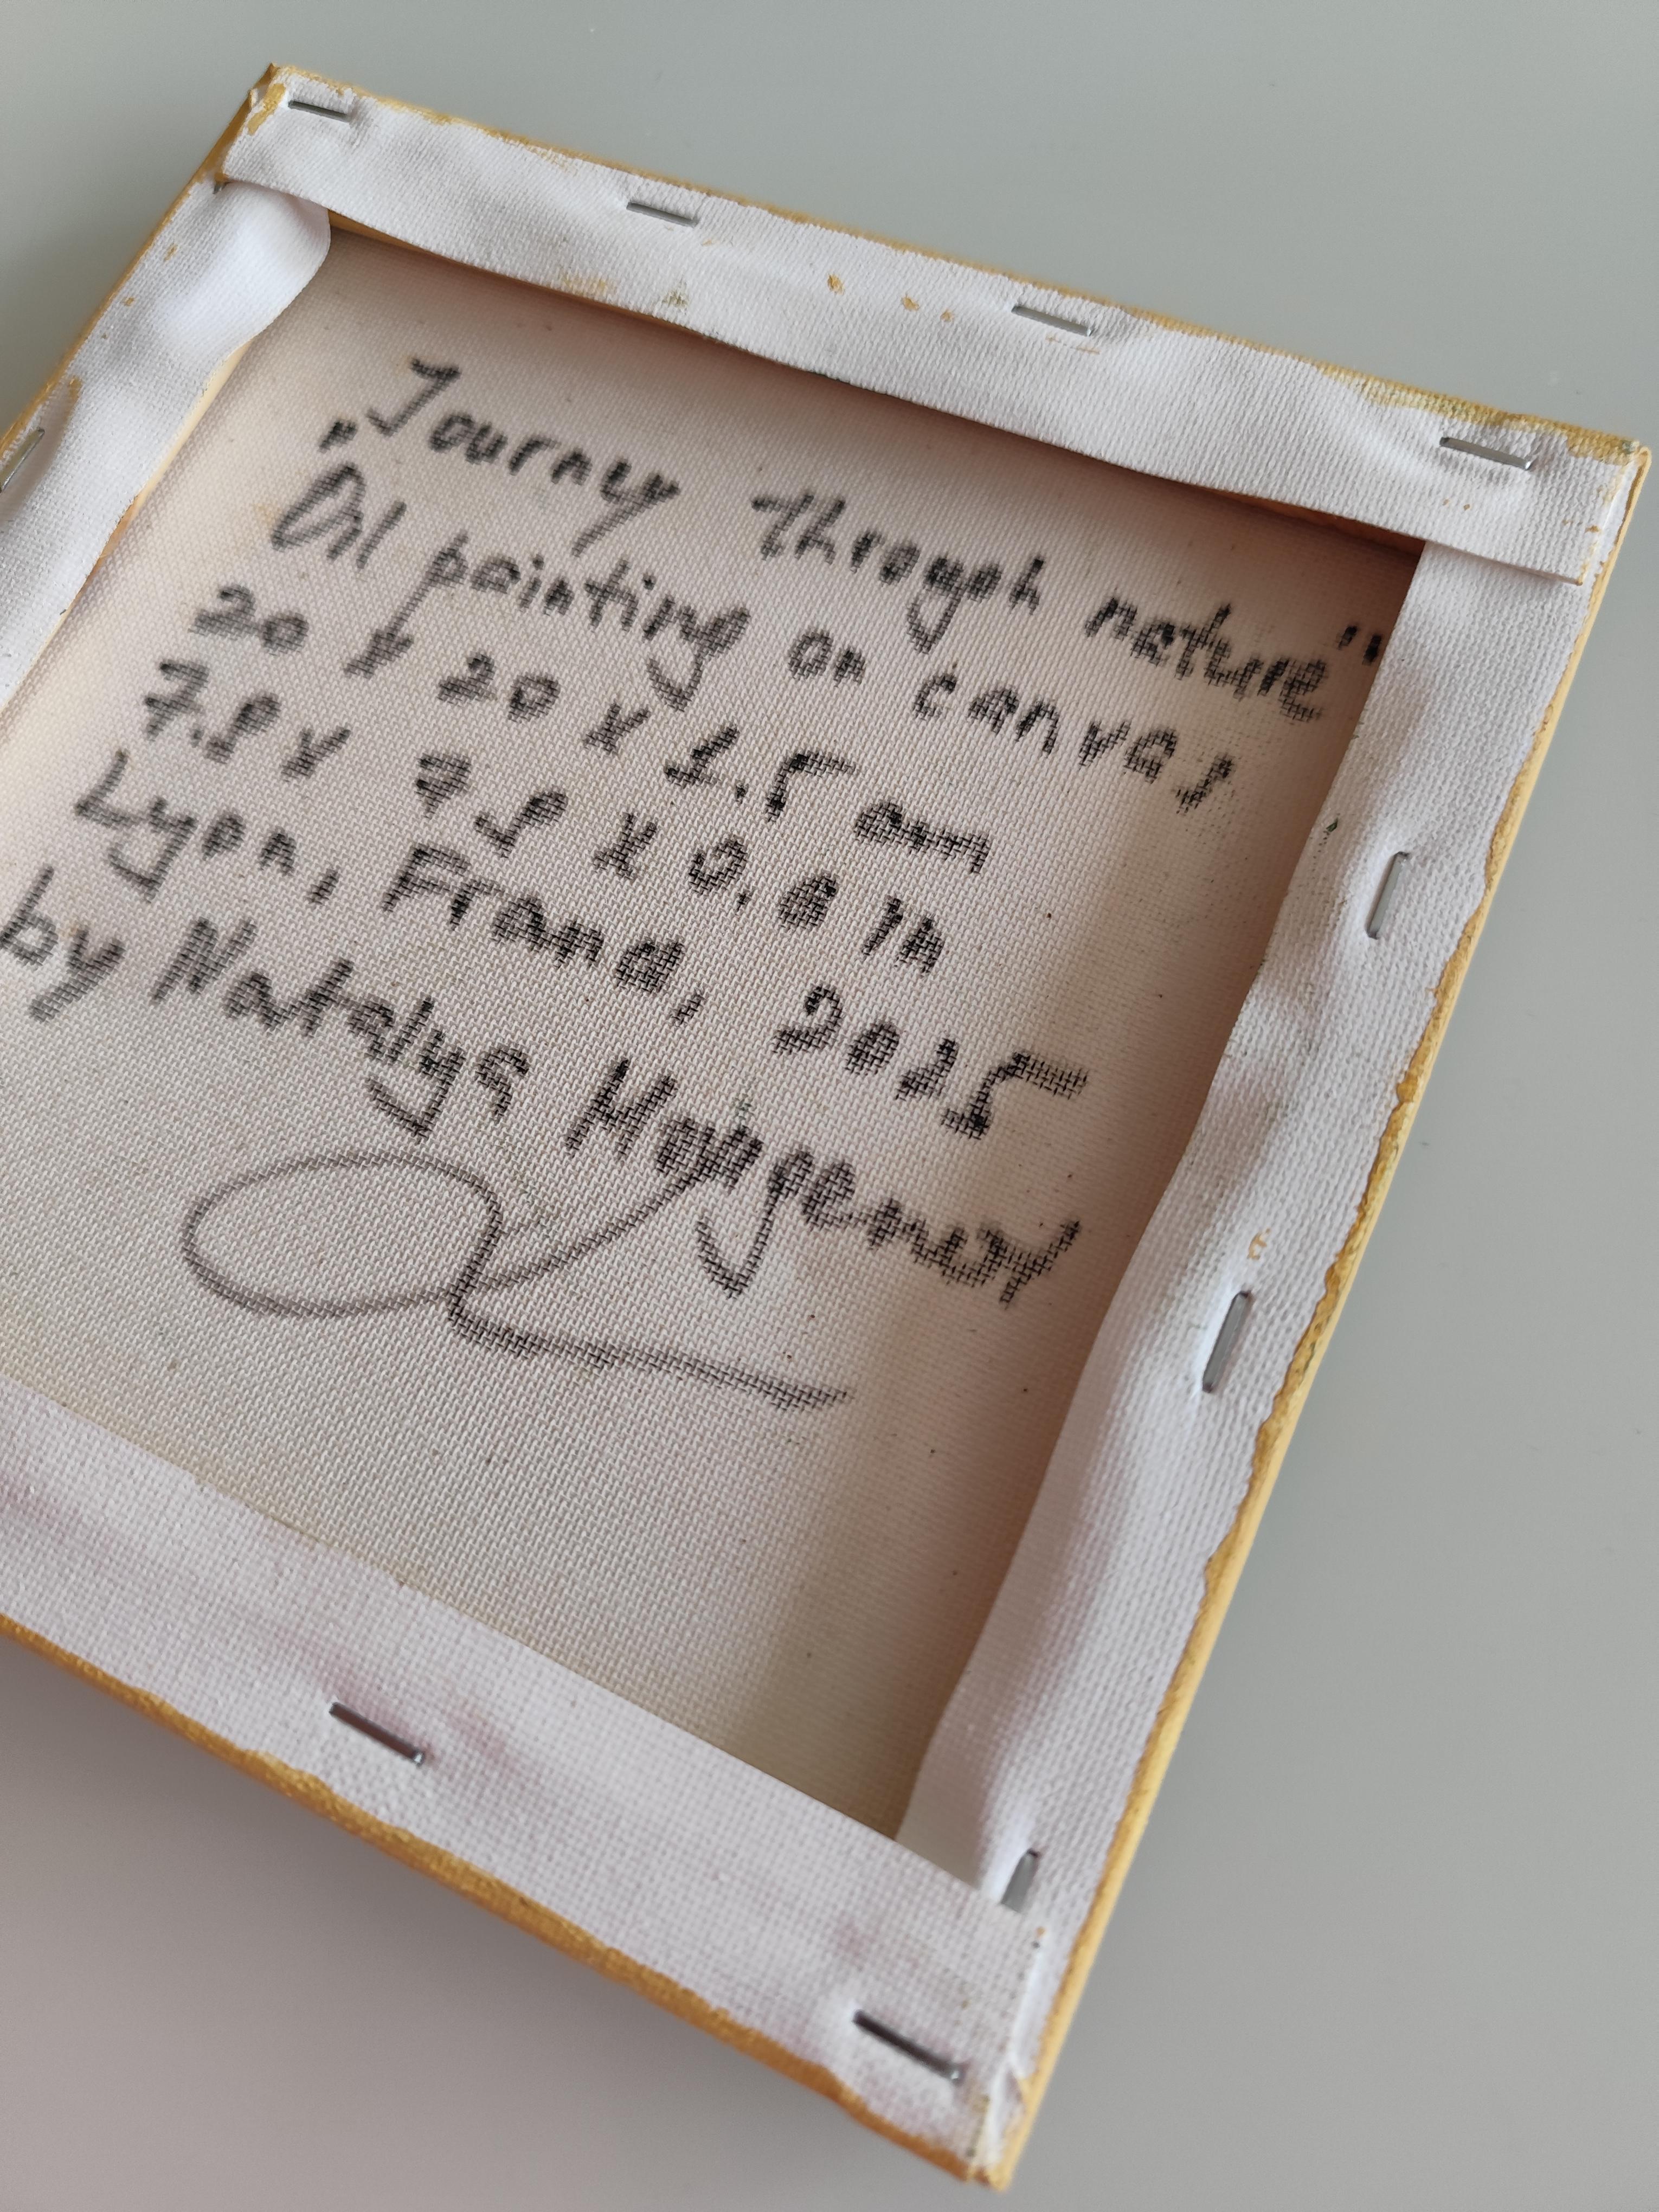 „Journey through nature"
Oil painting on canvas
20 x 20 x 1.5 cm
7.8 x 7.8 x 0.6 in
Lyon, France, 2025
by Natalya